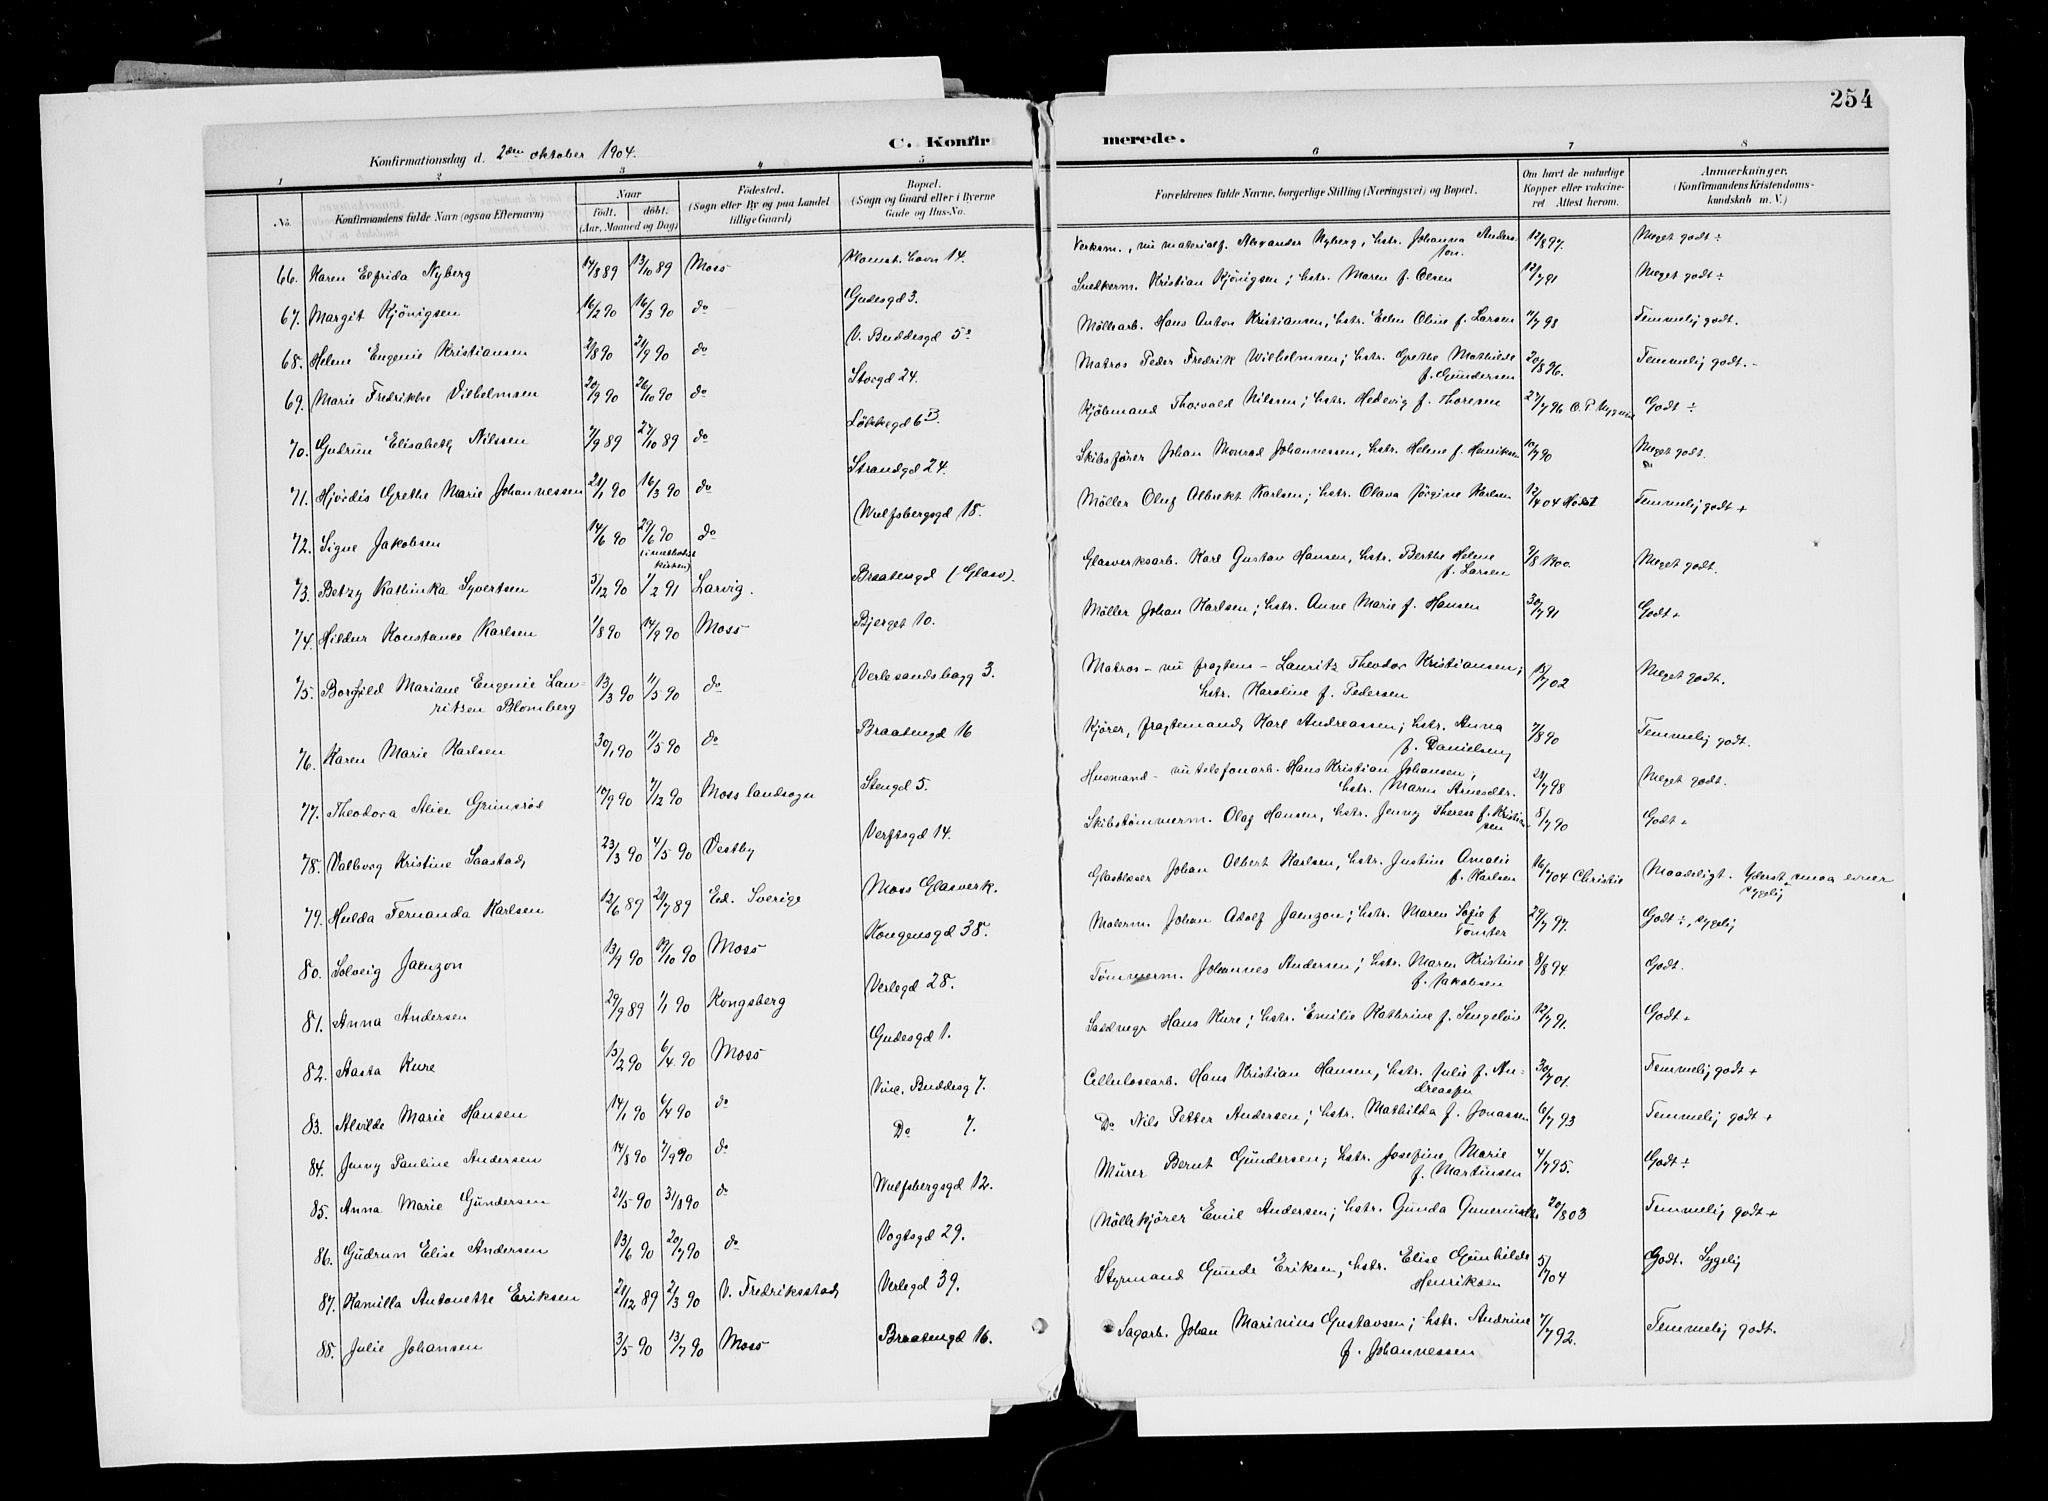 254
Konfirmationsdag d. 2den oktober 1904.
C. Konfirmerede.
1 2 3 4 5 6 7 8
No.
Konfirmandens fulde Navn (ogsaa Efternavn)
Naar
födt. döbt.
(Aar, Maaned og Dag)
Födested.
(Sogn eller By og paa Landet
tillige Gaard)
Bopæl.
(Sogn og Gaard eller i Byerne
Gade og Hus-No.
Forældrenes fulde Navne, borgerlige Stilling (Næringsvei) og Bopæl.
Om havt de naturlige
Kopper eller vaccine-
ret Attest herom.
Anmærkninger.
(Konfirmandens Kristendoms-
kundskab m. V.)
66. Karen Elfrida Nyberg 14/8 89 13/10 89 Moss havn 14. Verksm., nu materialf. Alexander Nyberg, hstr. Johanna Anders-
son. 17/8 97. Meget godt ÷
67. Margit Kjönigsen 16/2 90 16/3 90 do Gudesgd 3. Snedkerm. Kristian Kjönigsen; hstr. Maren f. Olsen 12/7 91 Meget godt ÷
68. Helene Eugenie Kristiansen 2/8 90 21/9 90 do V. Buddesgd 5 Möllearb. Hans Anton Kristiansen, hstr. Ellen Oline f. Larsen 11/7 98 Temmelig godt.
69. Marie Fredrikke Vilhelmsen 20/9 90 26/10 90 do Storgd 24. Matros Peder Fredrik Wilhelmsen; hstr. Grethe Mathilde
f. Gundersen 20/8 96. Temmelig godt.
70. Gudrun Elisabeth Nilssen 7/9 89 27/10 89 do Lökkegd 6B. Kjöbmand Thorvald Nilssen; hstr. Hedevig f. Thoresen 27/7 96 Godt ÷
71. Hjördis Grethe Marie Johannessen 21/1 90 16/3 90 do Strandgd 24. Skibsförer Johan Monrad Johannessen, hstr. Helene f. Henriksen 10/7 90 Meget godt.
72. Signe Jakobsen 14/6 90 29/6 90 do Wulfsbergsgd 18. Möller Oluf Albrekt Karlsen; hstr. Olava Jörgine Karlsen 12/7 04 Temmelig godt +
(i methodist
kirken)
73. Betzy Kathinka Syvertsen 5/12 90 1/2 91 Larvig. Braatengd (Glasv). Glasverksarb. Karl Gustav Hansen, hstr. Berthe Helene
f. Larsen Meget godt.
74. Hildur Konstance Karlsen 1/8 90 14/9 90 Moss Bjerget 10. Möller Johan Karlsen; hstr. Anne Marie f. Hansen 30/7 91 Godt +
75. Borghild Mariane Eugenie Lau-
ritsen Blomberg 13/3 90 11/5 90 do Verlesandsbagg 3. Matros - nu fragtem - Lauritz Theodor Kristiansen;
hstr. Karoline f. Pedersen 15/7 02 Meget godt.
76. Karen Marie Karlsen 30/1 90 11/5 90 do Braatengd 16 Kjörer, fragtemand, Karl Andreassen; hstr. Anna
f. Danielsen 7/8 90 Temmelig godt.
77. Theodora Alice Grimsröd 10/9 90 7/12 90 Moss landsogn Stengd 5. Husmand - nu telefonarb. Hans Kristian Johansen;
hstr. Maren Arnesdtr. 21/7 98 Meget godt.
78. Valborg Kristine Saastad 23/3 90 4/5 90 Vestby Verftsgd 14. Skibstömmerm. Olaf Hansen, hstr. Jenny Therese f. Kristian
sen 8/7 90 Godt +
79. Hulda Fernanda Karlsen 12/6 89 28/7 89 Ed. Sverige Moss Glasverk. Glasblæser Johan Albert Karlsen, hstr. Justine Amalie
f. Karlsen 16/7 04 Christie Maadeligt. Yderst smaa evner
+ sygelig
80. Solveig Jaenzon 13/9 90 19/10 90 Moss Kongensgd 38. Malerm. Johan Adolf Jaenzon; hstr. Maren Sofie f.
Tömter 29/7 97. Godt ÷, sygelig
81. Anna Andersen 29/9 89 1/1 90 Kongsberg Verlegd 28. Tömmerm. Johannes Andersen; hstr. Maren Kristine
f. Jakobsen 8/8 94 Godt.
82. Aasta Kure 15/2 90 6/4 90 Moss Gudesgd 1. Hans Kure; hstr. Emilie Kathrine f. Sengelöv 12/7 91. Godt +
83. Alvilde Marie Hansen 14/1 90 6/4 90 do Vinc. Buddesg 7. Cellulosearb. Hans Kristian Hansen, hstr. Julie f. An-
dreassen 30/7 01. Temmelig godt +
84. Jenny Pauline Andersen 14/8 90 7/9 90 do Do 7. Do Nils Petter Andersen; hstr. Mathilda f. Jonassen 6/7 93 Temmelig godt +
85. Anna Marie Gundersen 21/5 90 31/8 90 do Wulfsbergsgd 12. Murer Bernt Gundersen; hstr. Josefine Marie
f. Martinsen 4/7 95. Godt ÷
86. Gudrun Elise Andersen 13/6 90 20/7 90 do Vogtsgd 29. Möllekjörer Emil Andersen; hstr. Gunda 20/8 03 Temmelig godt +
87. Kamilla Antonette Eriksen 21/12 89 2/3 90 V. Fredriksstad Verlegd 39. Styrmand Gunde Eriksen, hstr. Elise Gunhilde
Henriksen 5/7 04 Godt. Sygelig
88. Julie Johansen 3/5 90 13/7 90 Moss Braatengd 16. Sagarb. Johan Marinius Gustavsen; hstr. Andrine
f. Johannessen 7/7 92. Temmelig godt.